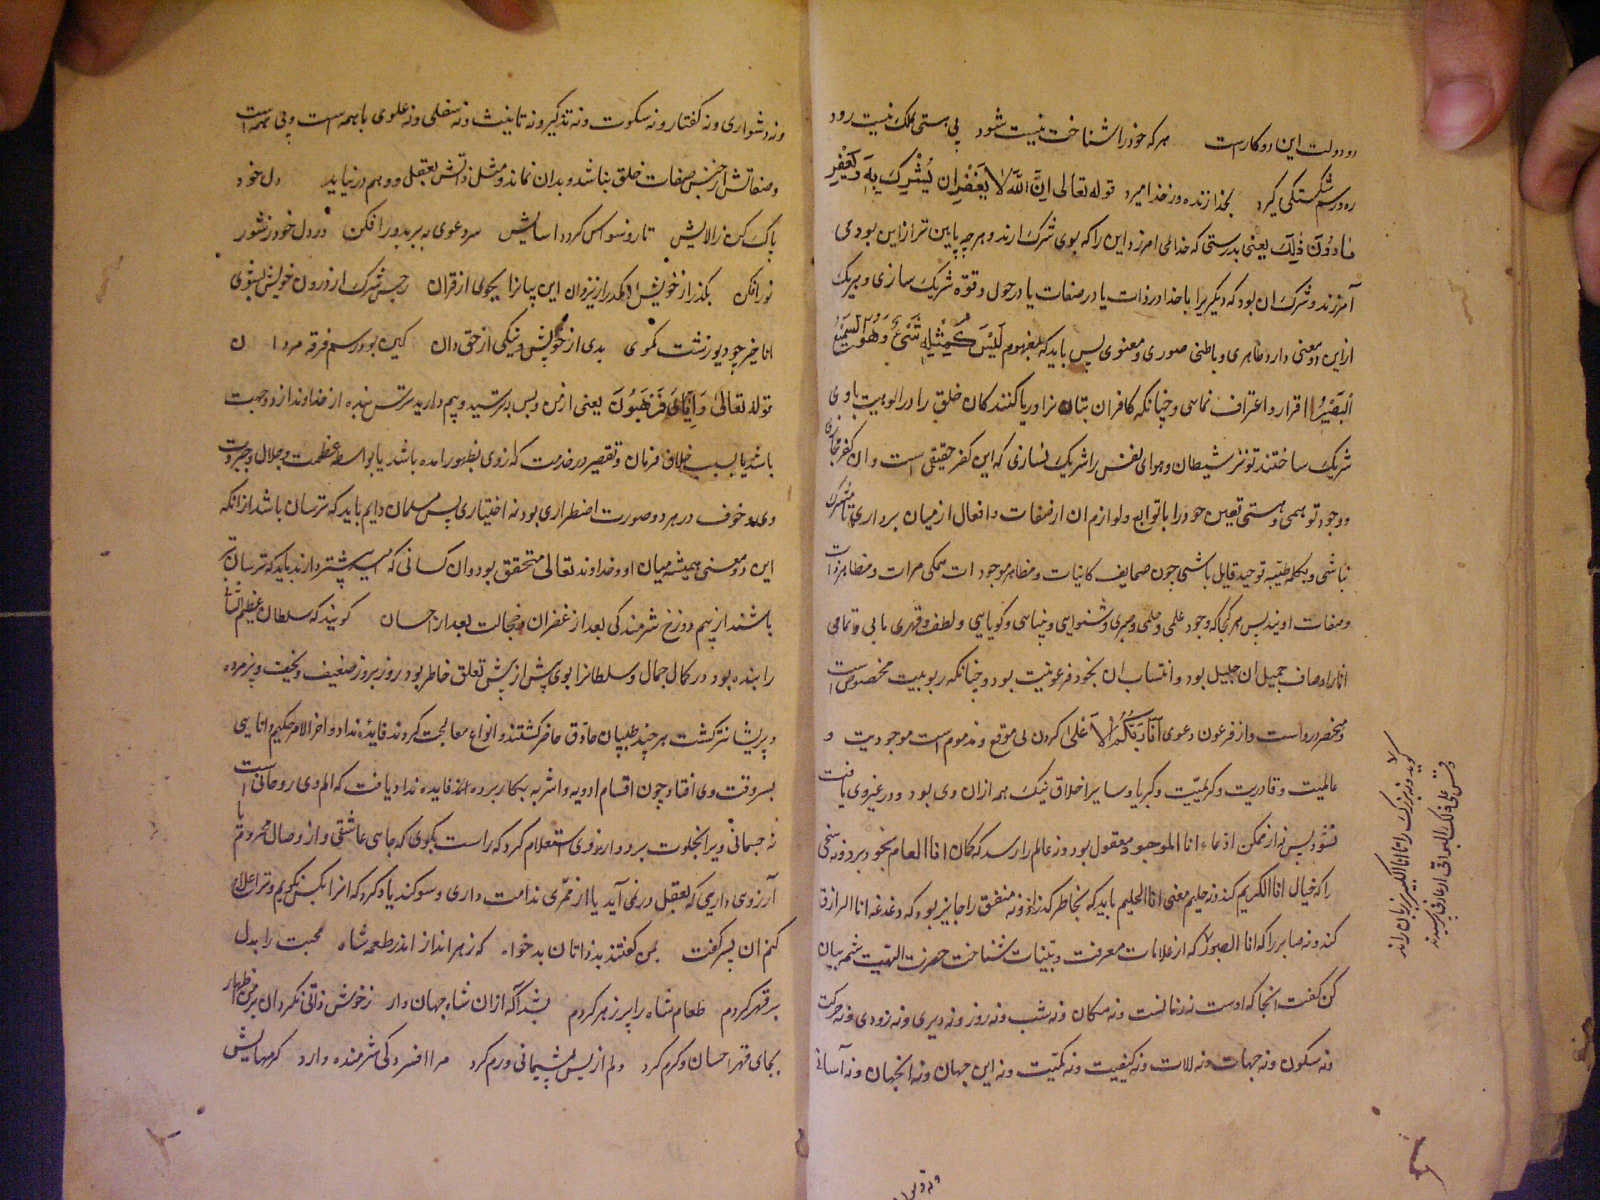 دو دولت این دو کارست هر که خود را شناخت نیست شود پی پستی ملک نیست رود
ره و رسم شکستگی گیرد بخدا زنده و ز خدا میرد قوله تعالی اِنَّ اللّٰهَ لَا یَغْفِرُ اَن یُشْرِکَ بِهٖ وَیَغْفِرُ
مَادُوْنَ ذٰلِکَ یعنی بدرستی که خدای امرزد این را که بوی شرک ارند و هر چه پایین تر از این بود می
آمرزند و شرک ان بود که دیگریرا با خدا در ذات یا در صفات یا در حول و قوّه شریک سازی و هر یک
ازین دو معنی دارد ظاهری و باطنی صوری و معنوی پس باید که بمفهوم لَیْسَ کَمِثْلِهٖ شَیْءٌ وَهُوَ السَّمِیْعُ
البَصِیْرُ اقرار و اعتراف نمایی و چنانکه کافران بتان نرا و ریا کنندکان خلق را در الوهیت با وی
شریک ساختند تو نیز شیطان و هوای نفس را شریک نسازی که این کفر حقیقی است و ان کفر مجازی
و وجود توهمی و هستی تعین خود را با توابع و لوازم ان از صفات و افعال از میان برداری تا مشرک
نباشی و بکلمه طیبه توحید قایل باشی چون صحایف کاینات و مظاهر موجودات همکی مرات و مظاهر ذات
و صفات اویند پس هر کجا که وجود علمی و حلمی و صبری و شنوایی و بینایی و کویایی و لطف و قهری یابی و تمامی
اثار اوصاف جمیل ان جلیل بود و انتساب ان بخود فرعونیت بود و چنانکه ربوبیت مخصوص است
و منحصر رواست و از فرعون دعوی اَنَا رَبُّکُمُ الْاَعْلٰی کردن بی موقع و مذموم است موجودیت و
عالمیت و قادریت و کرمیّت و کبریا و سایر اخلاق نیک همه ازان وی بود و در غیر وی یافت
نشود پس نه از ممکن ادعاء انا الموجود معقول بود و نه عالم را رسد که کمان انا العالم بخود برد و نه سخی
را که خیال انا الکریم کند و نه حلیم معنی انا الحلیم باید که بخاطر گذراند و نه منفق را جایز بود که دغدغه انا الرازق
کند و نه صابر را که انا الصبور که از علامات معرفت و بینات شناخت حضرت الهیت شمه بیان
کن کفت انجا که اوست نه زمانست و نه مکان و نه شب و نه روز و نه دیری و نه زودی و نه حرکت
و نه سکون و نه جهات و نه الات و نه کیفیت و نه کمیّت و نه این جهان و نه انجهان و نه آسانی
و نه دشواری و نه کفتار و نه سکوت و نه تذکیر و نه تانیث و نه سفلی و نه علوی با همه است و بی همه است
و صفاتش از جنس صفات خلق نباشد و بدان نماند و مثل ذاتش بعقل و وهم در نیاید دل خود
پاک کن ز الایش تا رود نور افکن بکذر از خویش
انا خیر چو دیو زشت مکوی بدی از خویش و نیکی از حق دان
قوله تعالی وَاِیَّایَ فَارْهَبُوْنَ یعنی از من و بس بترسید و بیم دارید ترس بنده از خداوند از دو جهت
باشد یا بسبب خلاف فرمان و تقصیر در خدمت که از وی بظهور امده باشد یا بواسطه عظمت و جلال و جبروت
وی و خوف در هر دو صورت اضطراری بود نه اختیاری پس مسلمان دایم باید که ترسان باشد از انکه
این دو معنی همیشه میان او و خداوند تعالی متحقق بود و ان کسانی که بیشتر دارند باید که ترسان تر
باشند از بیم دوزخ شرمندکی بعد از غفران و خجالت بعد از احسان کویند که سلطان عظیم الشان
را بنده بود در کمال جمال و سلطانرا بوی بیش از پیش تعلق خاطر بود روز بروز ضعیف و نحیف و پژمرده
و پریشانتر کشت هر چند طبیبان حاذق حاضر کشتند و انواع معالجت کردند فایده نداد و اخر الامر حکیم دانایی
بسر وقت وی افتاد چون اقسام ادویه و اشربه بکار برده فایده نداد یافت که الم وی روحانی است
نه جسمانی ویرا بخلوت برد و از وی استعلام کرد که راست بکوی که جایی عاشقی و از وصال محروم یا
آرزوی داری که بعقل در نمی آید یا از ممری ندامت داری و سوکند یاد کرد که انرا بکس نکویم و ترا علاج
کنم ان پسر کفت بمن کفتند بدذاتان بدخواه که زهر انداز اندر طعمه شاه محبت را بدل
بر قهر کردم طعام شاه را پر زهر کردم بشد آکه ازان شاه جهان دار ز خوش ذاتی نکردان بر من اظهار
بجای قهر احسان و کرم کرد دلم از بس پشیمانی ورم کرد مرا افسردکی شرمنده دارد کرمهایش